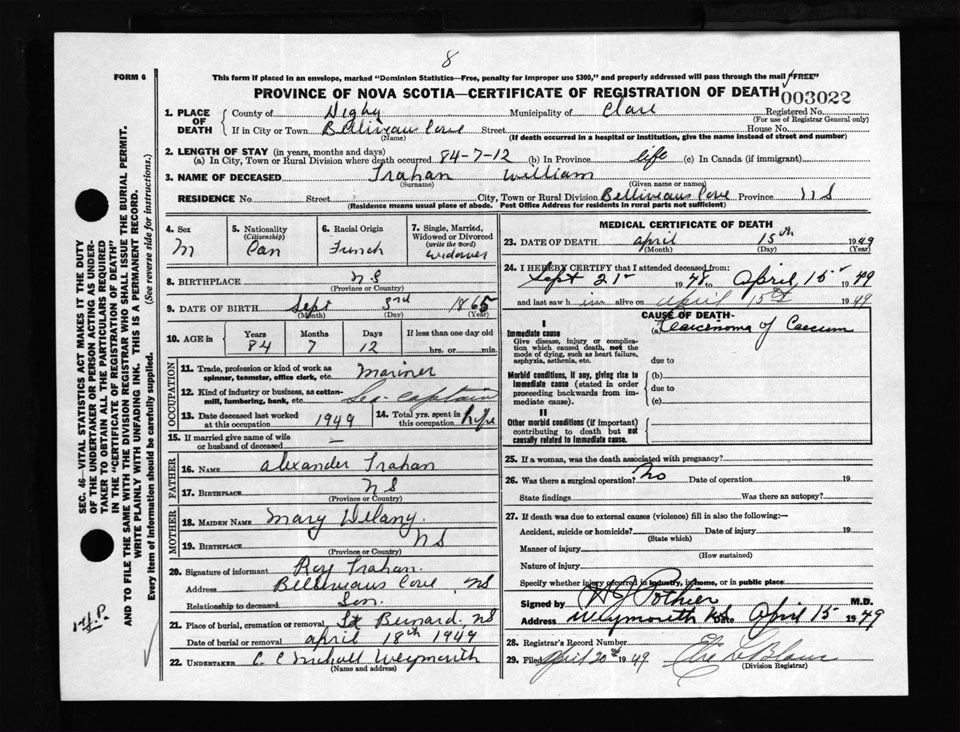 8
FORM 6
This form if placed in an envelope, marked "Dominion Statistics—Free, penalty for improper use $300," and properly addressed will pass through the mail "FREE"
PROVINCE OF NOVA SCOTIA—CERTIFICATE OF REGISTRATION OF DEATH 003022
1. PLACE OF DEATH County of Digby Municipality of Clare Registered No.
(For use of Registrar General only)
If in City or Town Belliveaus Cove Street House No.
(Name) (If death occurred in a hospital or institution, give the name instead of street and number)
2. LENGTH OF STAY (in years, months and days)
(a) In City, Town or Rural Division where death occurred 84-7-12 (b) In Province life (c) In Canada (if immigrant)
3. NAME OF DECEASED Trahan William
(Surname) (Given name or names)
RESIDENCE No. Street City, Town or Rural Division Belliveaus Cove Province NS
(Residence means usual place of abode. Post Office Address for residents in rural parts not sufficient)
4. Sex M
5. Nationality (Citizenship) Can
6. Racial Origin French
7. Single, Married, Widowed or Divorced (write the word) Widower
8. BIRTHPLACE NS
(Province or Country)
9. DATE OF BIRTH Sept 3rd 1865
(Month) (Day) (Year)
10. AGE in Years Months Days If less than one day old
84 7 12 hrs. or min.
OCCUPATION
11. Trade, profession or kind of work as spinner, teamster, office clerk, etc. Mariner
12. Kind of industry or business, as cotton-mill, lumbering, bank, etc. Sea Captain
13. Date deceased last worked at this occupation 1949
14. Total yrs. spent in this occupation life
15. If married give name of wife or husband of deceased —
FATHER
16. NAME Alexander Trahan
17. BIRTHPLACE NS
(Province or Country)
MOTHER
18. MAIDEN NAME Mary Delany
19. BIRTHPLACE NS
(Province or Country)
20. Signature of informant Roy Trahan.
Address Belliveaus Cove NS
Relationship to deceased Son
21. Place of burial, cremation or removal St Bernard, NS
Date of burial or removal April 18th 1949
22. UNDERTAKER C. C Nichall Weymouth
(Name and address)
MEDICAL CERTIFICATE OF DEATH
23. DATE OF DEATH April 15th 1949
(Month) (Day) (Year)
24. I HEREBY CERTIFY that I attended deceased from:
Sept 21st 1948 to April 15 1949
and last saw him alive on April 15th 1949
CAUSE OF DEATH
I
Immediate cause (a) Carcinoma of Caecum
Give disease, injury or complication which caused death, not the mode of dying, such as heart failure, asphyxia, asthenia, etc. due to
Morbid conditions, if any, giving rise to immediate cause (stated in order proceeding backwards from immediate cause). (b)
due to
(c)
II
Other morbid conditions (if important) contributing to death but not causally related to immediate cause.
25. If a woman, was the death associated with pregnancy?
26. Was there a surgical operation? No Date of operation 19
State findings Was there an autopsy?
27. If death was due to external causes (violence) fill in also the following:—
Accident, suicide or homicide? Date of injury 19
(State which)
Manner of injury
(How sustained)
Nature of injury
Specify whether injury occurred in industry, in home, or in public place
Signed by H J Pothier M.D.
Address Weymouth NS Date April 15 1949
28. Registrar's Record Number
29. Filed April 20th 1949 Elie LeBlanc
(Division Registrar)
SEC. 46—VITAL STATISTICS ACT MAKES IT THE DUTY
OF THE UNDERTAKER OR PERSON ACTING AS UNDER-
TAKER TO OBTAIN ALL THE PARTICULARS REQUIRED
IN THE "CERTIFICATE OF REGISTRATION OF DEATH"
AND TO FILE THE SAME WITH THE DIVISION REGISTRAR WHO SHALL ISSUE THE BURIAL PERMIT.
WRITE PLAINLY WITH UNFADING INK. THIS IS A PERMANENT RECORD.
Every item of information should be carefully supplied. (See reverse side for instructions.)